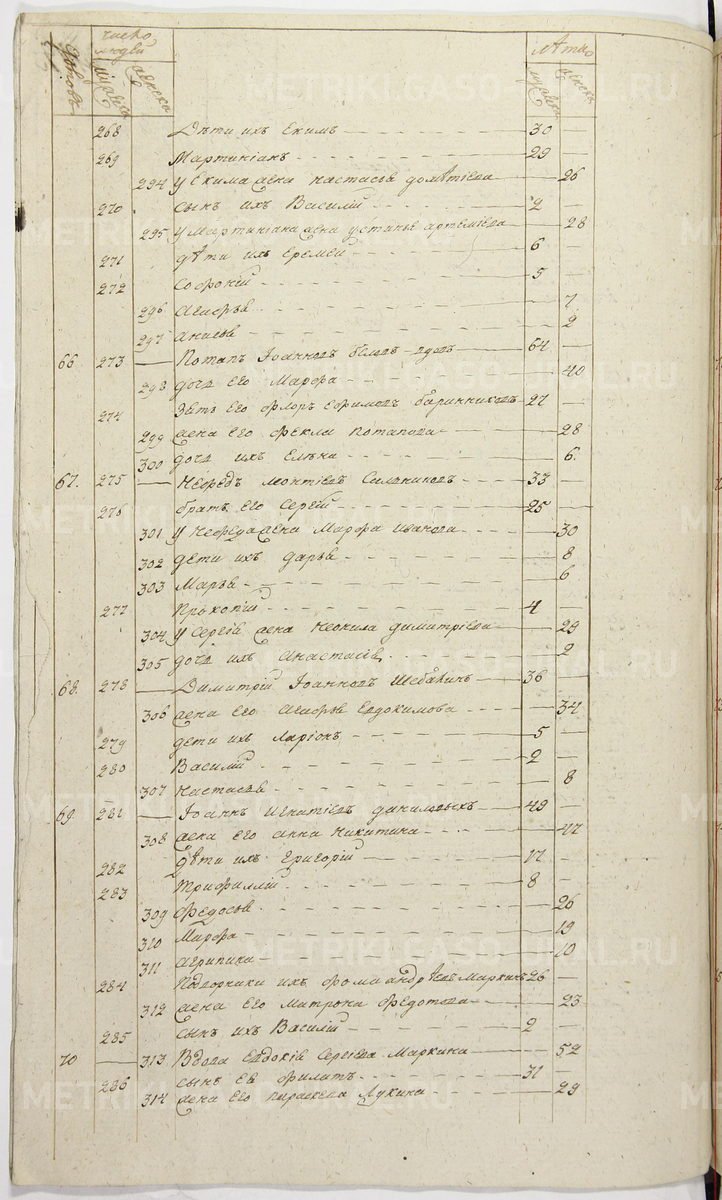 домовъ число людей мужеска женска лѣта мужеска женска
268 Дѣти ихъ Екимъ 30
269 Мартиніанъ 29
294 У Екима жена настасья домѣтіева 26
270 сынъ ихъ Василій 2
295 У Мартиніана жена устинья артеміева 28
271 дѣти ихъ Еремей 6
272 Софроній 5
296 Агафья 7
297 Анисья 2
66 273 Потапъ Іоанновъ вдовъ 64
298 дочь Его Марфа 40
274 зять Его Флоръ Ефимовъ баринниковъ 27
299 жена Его Фекла Потапова 28
300 дочь ихъ Елѣна 6
67. 275 Нефедъ леонтіевъ Сальниковъ 33
276 братъ Его Сергій 25
301 У Нефеда жена Марфа Иванова 30
302 дети ихъ дарья 8
303 Марья 6
277 Прокопій 4
304 У Сергія жена Неонила димитріева 29
305 дочь ихъ Анастасія 2
68 278 Димитрій Іоанновъ Шебакинъ 36
306 жена Его Агафья Евдокимова 34
279 дети ихъ Ларіонъ 5
280 Василій 2
307 Настасья 8
69 281 Іоаннъ Игнатіевъ даниловыхъ 49
308 жена Его анна Никитина 47
282 дѣти ихъ Григорій 17
283 Трифиллій 8
309 Федосья 26
310 Марфа 19
311 агрипина 10
284 Подворники ихъ фома андрѣевъ Маркинъ 26
312 жена Его Матрона Федотова 23
285 сынъ ихъ Василій 2
70 313 Вдова Евдокія Сергіева Маркина 52
286 сынъ Ея Филатъ 31
314 жена Его параскева Лукина 29
METRIKI.GASO-URAL.RU